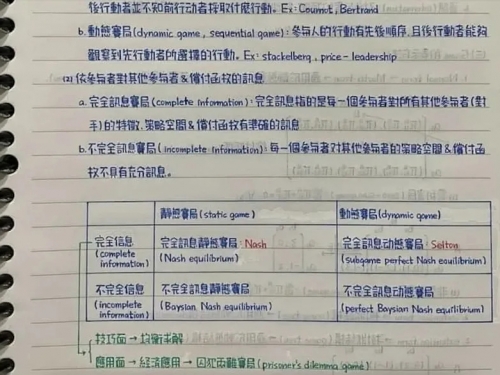 後行動者並不知前行动者採取什麼行動。Ex: Cournot, Bertrand
b. 動態賽局(dynamic game, sequential game): 參与人的行動有先後順序, 且後行動者能夠
觀察到先行動者所選擇的行動。Ex: stackelberg, price-leadership
(2) 依參与者對其他參与者&償付函数的訊息
a. 完全訊息賽局(complete information): 完全訊息指的是每一個參与者對所有其他參与者(對
手)的特徵、策略空間&償付函数有準確的訊息
b. 不完全訊息賽局(incomplete information): 每一個參与者對其他參与者的策略空間&償付函
数不具有充分訊息。
靜態賽局(static game) 動態賽局(dynamic game)
完全信息 完全訊息靜態賽局: Nash 完全訊息动態賽局: Selton
(complete (Nash equilibrium) (subgame perfect Nash equilibrium)
information)
不完全信息 不完全訊息靜態賽局 不完全訊息动態賽局
(incomplete (Baysian Nash equilibrium) (perfect Baysian Nash equilibrium)
information)
技巧面→均衡求解
應用面→經濟應用→囚犯兩難賽局(prisoner's dilemma game)